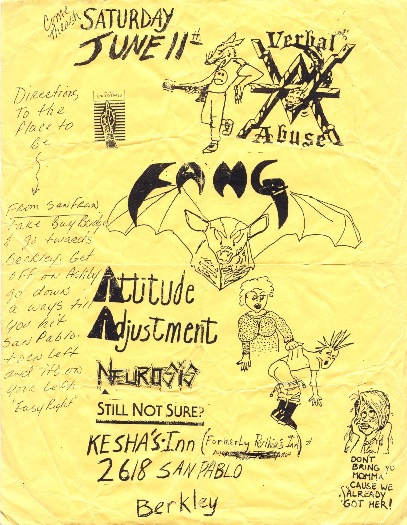 Come
Thrash
SATURDAY
JUNE 11th
Verbal
Abuse
Directions
To the
Place to
Be
FANG
From San Fran
take Bay Bridge
& go towards
Berkley. Get
off on Ashby
go down
a ways til
you hit
San Pablo.
turn left
and it's on
your left.
"Easy Right"
Attitude
Adjustment
NEUROSIS
STILL NOT SURE?
KESHA'S-Inn (Formerly Ruthie's Inn)
2618 SAN PABLO
Berkley
DONT
BRING YO
MOMMA
'CAUSE WE
ALREADY
GOT HER!